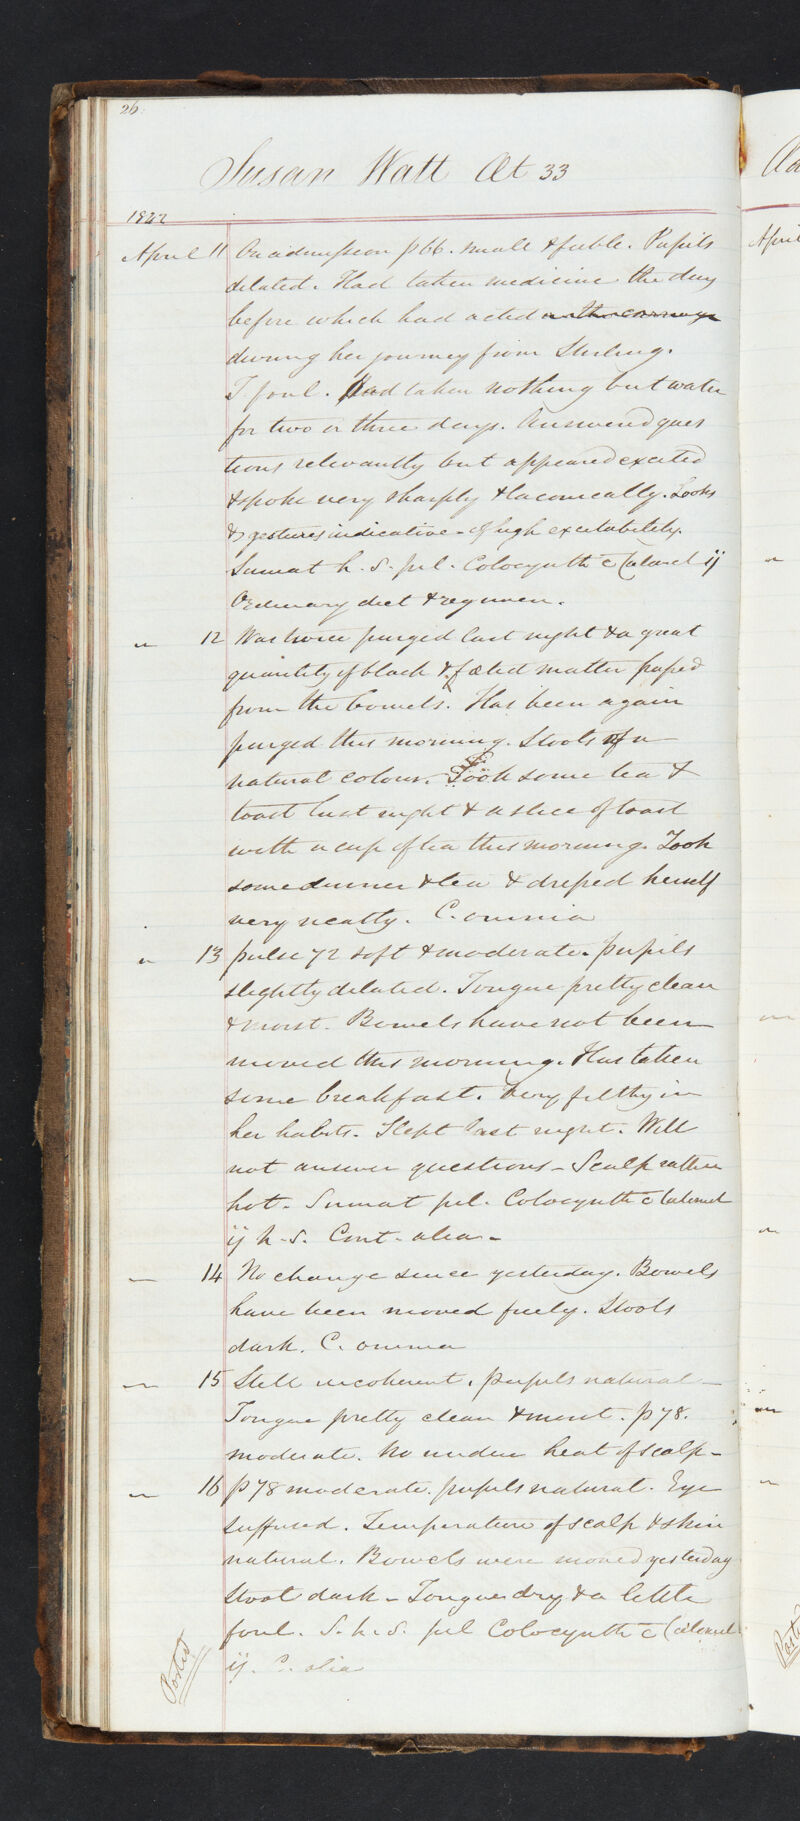 26.
Susan Watt Æt 33
1842
April 11 On admission p 66. small & feeble. Pupils
dilated. Had taken medicine the day
before which had acted
during her journey from Stirling.
T. foul. Had taken nothing but water
for two or three days. Answered ques
tions relevantly but appeared excited
& spoke very sharply & laconically. Looks
& gestures indicative of high excitability.
Sumat h. s. pil. Colocynth c Calomel ij
Ordinary diet & regimen.
" 12 Was twice purged last night & a great
quantity of black & fœtid matter passed
from the bowels. Has been again
purged this morning. Stools of a
natural colour. Took some tea &
toast last night & a slice of toast
with a cup of tea this morning. Took
some dinner & tea & dressed herself
very neatly. C. omnia
" 13 pulse 72 soft & moderate. pupils
slightly dilated. Tongue pretty clean
& moist. Bowels have not been
moved this morning. Has taken
some breakfast. Very filthy in
her habits. Slept last night. Will
not answer questions - Scalp rather
hot - Sumat pil. Colocynth c Calomel
ij h.s. Cont. alia -
" 14 No change since yesterday. Bowels
have been moved freely. Stools
dark. C. omnia
" 15 Still incoherent. pupils natural -
Tongue pretty clean & moist. p 78.
moderate. No undue heat of scalp -
" 16 p 78 moderate. pupils natural. Eye
suffused. Temperature of scalp & skin
natural. Bowels were moved yesterday
Stool dark - Tongue dry & a little
foul. S. h. s. pil Colocynth c Calomel
ij. C. alia
Posted
April
Posted